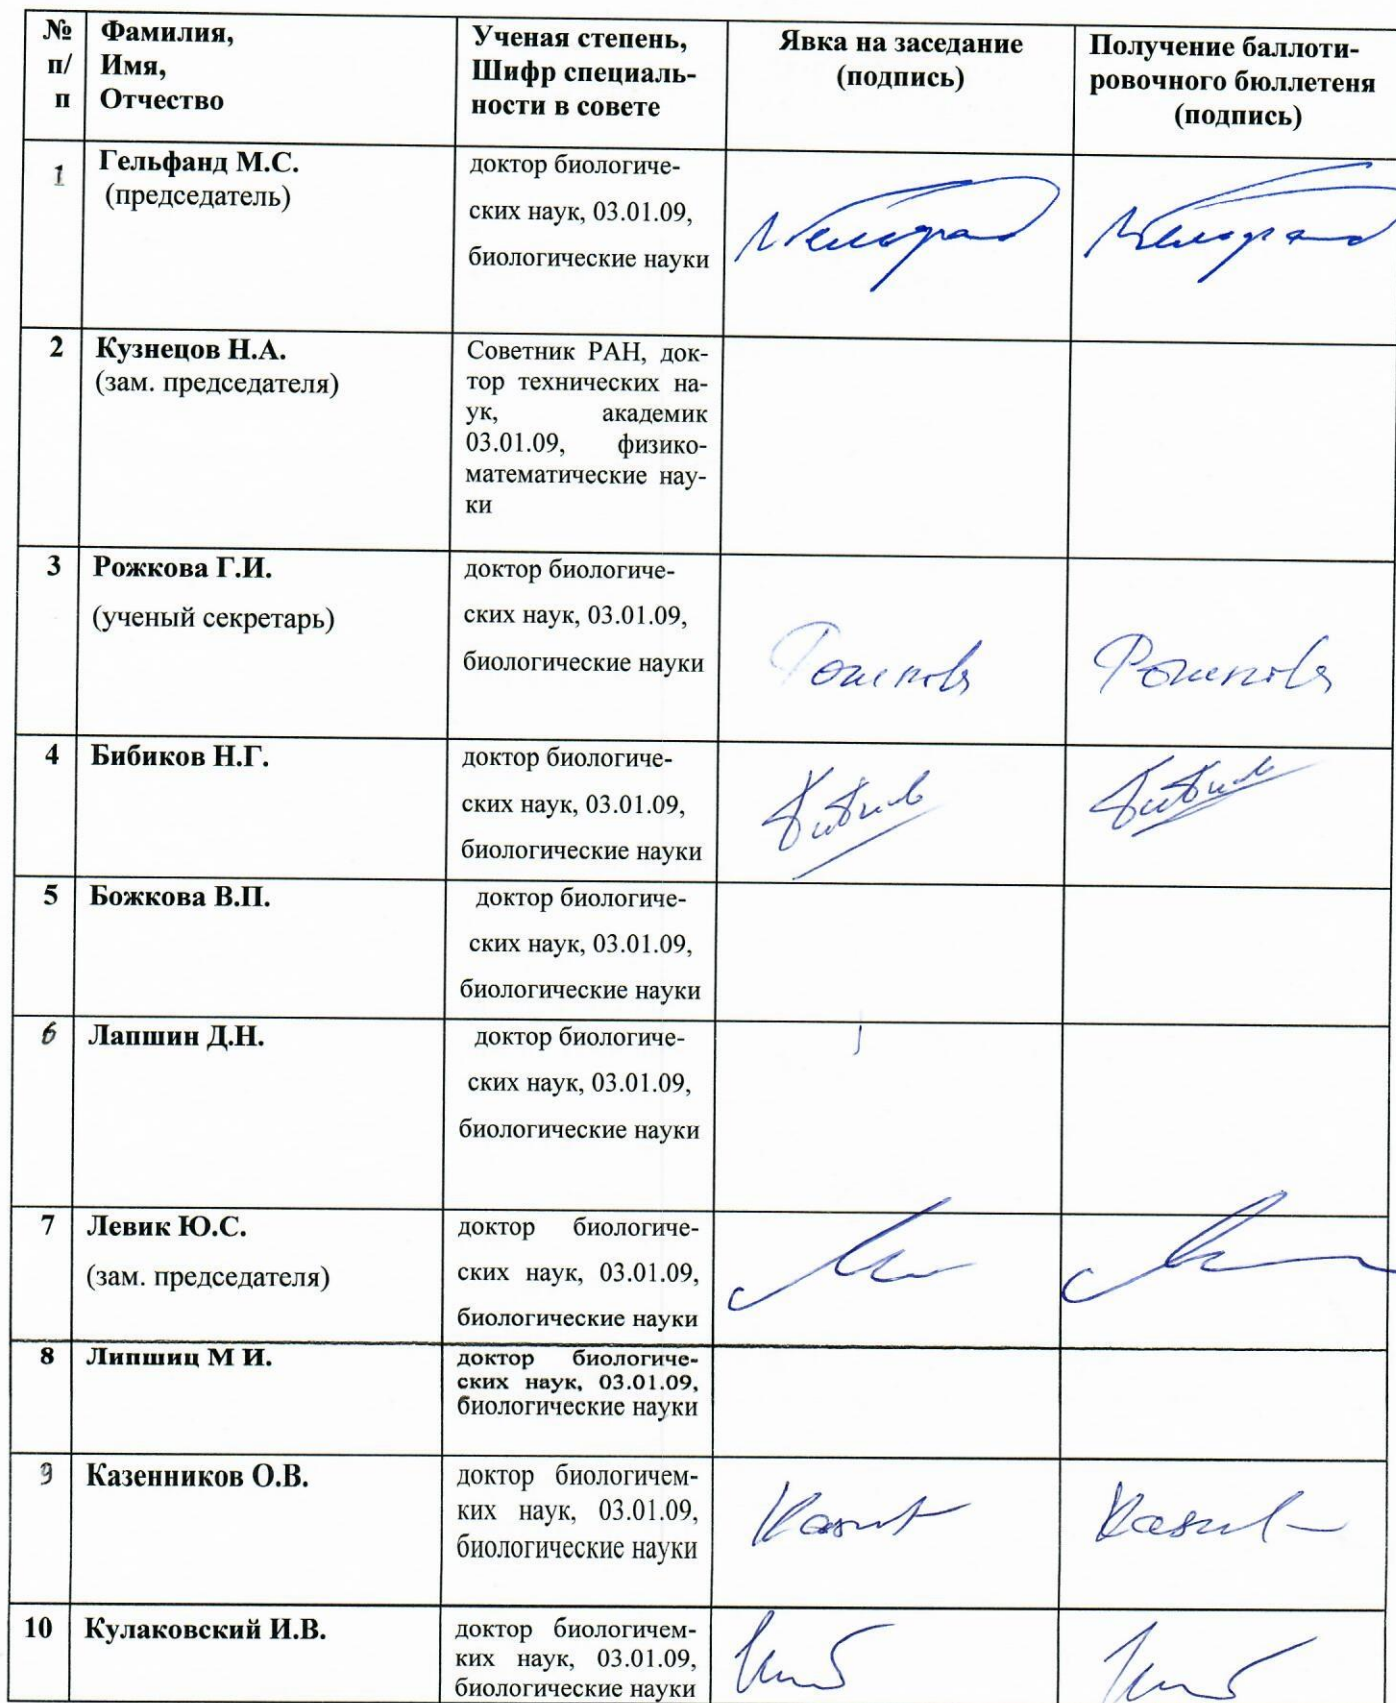 № п/п
Фамилия,
Имя,
Отчество
Ученая степень,
Шифр специаль-
ности в совете
Явка на заседание
(подпись)
Получение баллоти-
ровочного бюллетеня
(подпись)
1
Гельфанд М.С.
(председатель)
доктор биологиче-
ских наук, 03.01.09,
биологические науки
2
Кузнецов Н.А.
(зам. председателя)
Советник РАН, док-
тор технических на-
ук, академик
03.01.09, физико-
математические нау-
ки
3
Рожкова Г.И.
(ученый секретарь)
доктор биологиче-
ских наук, 03.01.09,
биологические науки
Рожкова
Рожкова
4
Бибиков Н.Г.
доктор биологиче-
ских наук, 03.01.09,
биологические науки
5
Божкова В.П.
доктор биологиче-
ских наук, 03.01.09,
биологические науки
6
Лапшин Д.Н.
доктор биологиче-
ских наук, 03.01.09,
биологические науки
7
Левик Ю.С.
(зам. председателя)
доктор биологиче-
ских наук, 03.01.09,
биологические науки
8
Липшиц М И.
доктор биологиче-
ских наук, 03.01.09,
биологические науки
9
Казенников О.В.
доктор биологичем-
ких наук, 03.01.09,
биологические науки
10
Кулаковский И.В.
доктор биологичем-
ких наук, 03.01.09,
биологические науки